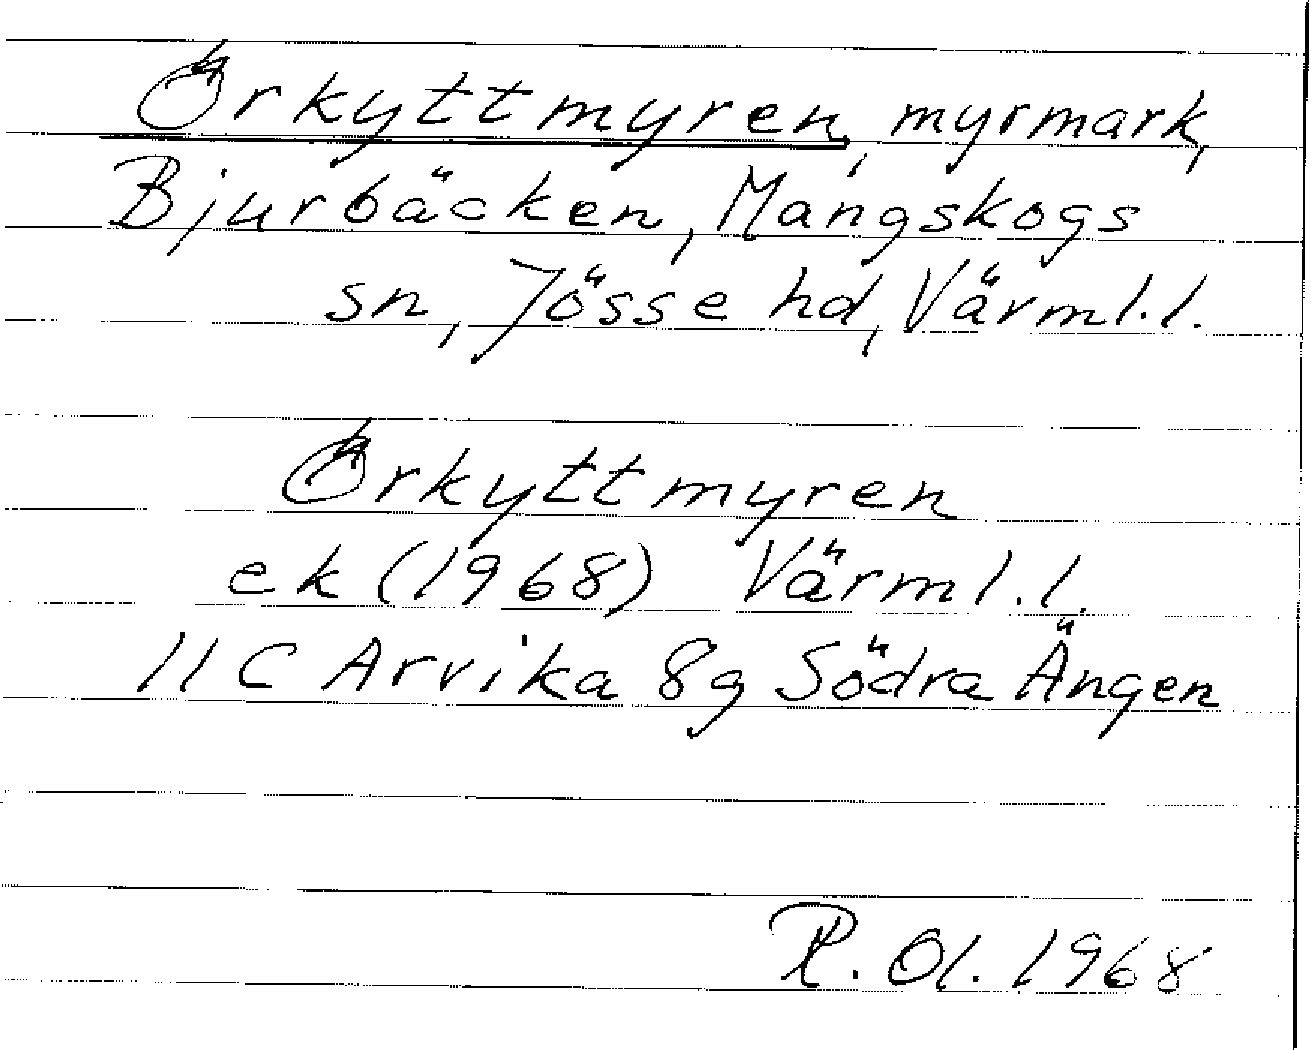 Örkyttmyren, myrmark,
Bjurbäcken, Mangskogs
sn, Jösse hd, Värml.l.
Örkyttmyren
ek (1968) Värml.l.
11 C Arvika 8g Södra Ängen
R. Ol. 1968